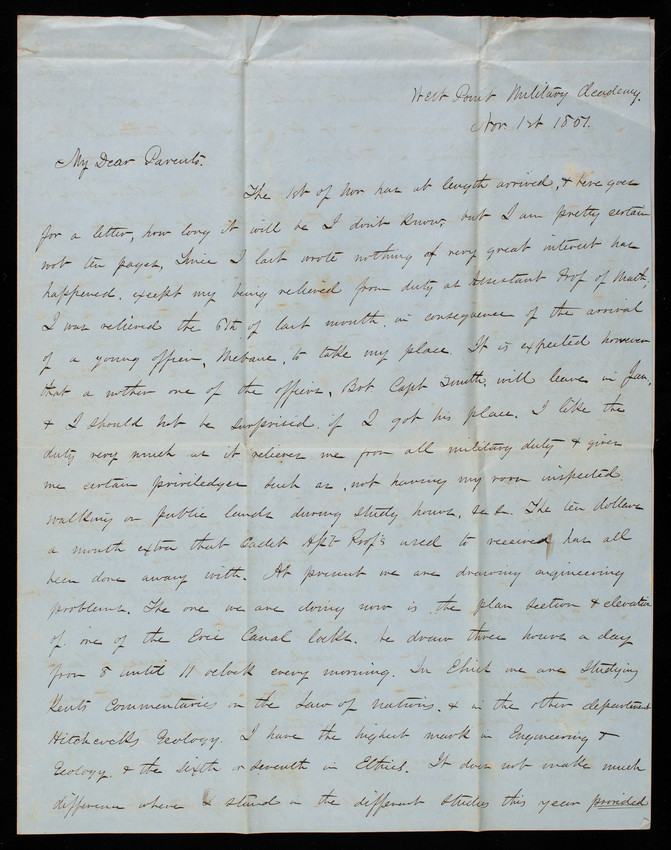 West Point Military Academy.
Nov 1st 1851.
My Dear Parents.
The 1st of Nov has at length arrived, & here goes
for a letter, how long it will be I don't know, but I am pretty certain
not ten pages, Since I last wrote nothing of very great interest has
happened, except my being relieved from duty as Assistant Prof of Math;
I was relieved the 6th of last month, in consequence of the arrival
of a young officer, Mebane, to take my place. It is expected however
that a nother one of the officers, Bvt Capt Smith, will leave in Jan,
& I should not be surprised if I got his place. I like the
duty very much as it relieves me from all military duty & gives
me certain priviledges such as, not having my room inspected,
walking on public lands during study hours, &c &. The ten dollars
a month extra that Cadet Asst Prof's used to received has all
been done away with. At present we are drawing engineering
problems. The one we are doing now is the plan section & elevation
of one of the Erie Canal locks. We draw three hours a day
from 8 until 11 oclock every morning. In Ethics we are studying
Kents Commentaries on the Law of Nations, & in the other department
Hitchcocks Geology. I have the highest mark in Engineering &
Geology, & the sixth or seventh in Ethics. It does not make much
difference where I stand in the different studies this year provided